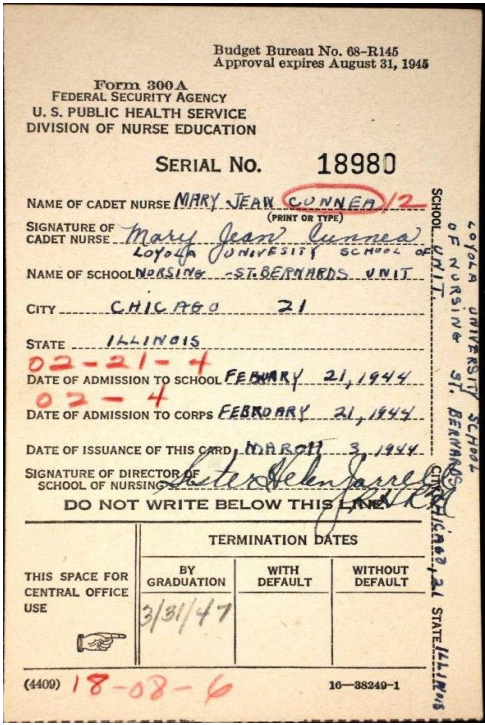 Budget Bureau No. 68-R145
Approval expires August 31, 1945
Form 300A
FEDERAL SECURITY AGENCY
U. S. PUBLIC HEALTH SERVICE
DIVISION OF NURSE EDUCATION
SERIAL NO. 18980
NAME OF CADET NURSE MARY JEAN CUNNEA 12
(PRINT OR TYPE)
SIGNATURE OF
CADET NURSE Mary Jean Cunnea
LOYOLA UNIVESITY SCHOOL OF
NAME OF SCHOOL NURSING - ST. BERNARDS UNIT
CITY CHICAGO 21
STATE ILLINOIS
02-21-4
DATE OF ADMISSION TO SCHOOL FEBUARY 21, 1944
02-4
DATE OF ADMISSION TO CORPS FEBRUARY 21, 1944
DATE OF ISSUANCE OF THIS CARD MARCH 3, 1944
SIGNATURE OF DIRECTOR OF
SCHOOL OF NURSING Sister Helen Jarrell
DO NOT WRITE BELOW THIS LINE
THIS SPACE FOR
CENTRAL OFFICE
USE
TERMINATION DATES
BY
GRADUATION
WITH
DEFAULT
WITHOUT
DEFAULT
3/31/47
(4409) 18-08-6
16—38249-1
LOYOLA UNIVERSITY SCHOOL
OF NURSING ST. BERNARDS
SCHOOL UNIT CITY CHICAGO, 21 STATE ILLINOIS